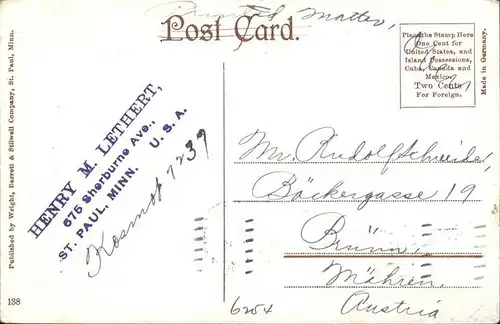 Printed Matter,
Post Card.
Place the Stamp Here
One Cent for
United States, and
Island Possessions,
Cuba, Canada and
Mexico.
Two Cents
For Foreign.
Made in Germany.
Published by Wright, Barrett & Stilwell Company, St. Paul, Minn.
HENRY M. LETHERT,
675 Sherburne Ave.,
ST. PAUL, MINN. U. S. A.
Kosmop 7239
Mr. Rudolf Schneider,
Bäckergasse 19
Brünn,
Mähren,
Austria
138